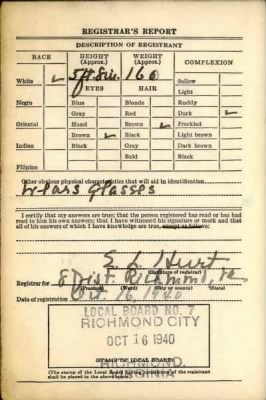 REGISTRAR'S REPORT
DESCRIPTION OF REGISTRANT
RACE HEIGHT (Approx.) WEIGHT (Approx.) COMPLEXION
5 ft 8 in. 160
White ✓ EYES HAIR Sallow
Light
Negro Blue Blonde Ruddy
Gray Red Dark ✓
Oriental Hazel Brown Freckled
Brown ✓ Black ✓ Light brown
Indian Black Gray Dark brown
Bald Black
Filipino
Other obvious physical characteristics that will aid in identification
Wears glasses
I certify that my answers are true; that the person registered has read or has had read to him his own answers; that I have witnessed his signature or mark and that all of his answers of which I have knowledge are true, except as follows:
E. L. Hurt
(Signature of registrar)
Registrar for 8 Dist Richmond, Va
(Precinct) (Ward) (City or county) (State)
Date of registration Oct 16, 1940
LOCAL BOARD NO. 7
RICHMOND CITY
OCT 16 1940
STAMP OF LOCAL BOARD
RICHMOND,
VIRGINIA
(The stamp of the Local Board having jurisdiction of the registrant
shall be placed in the above space.)